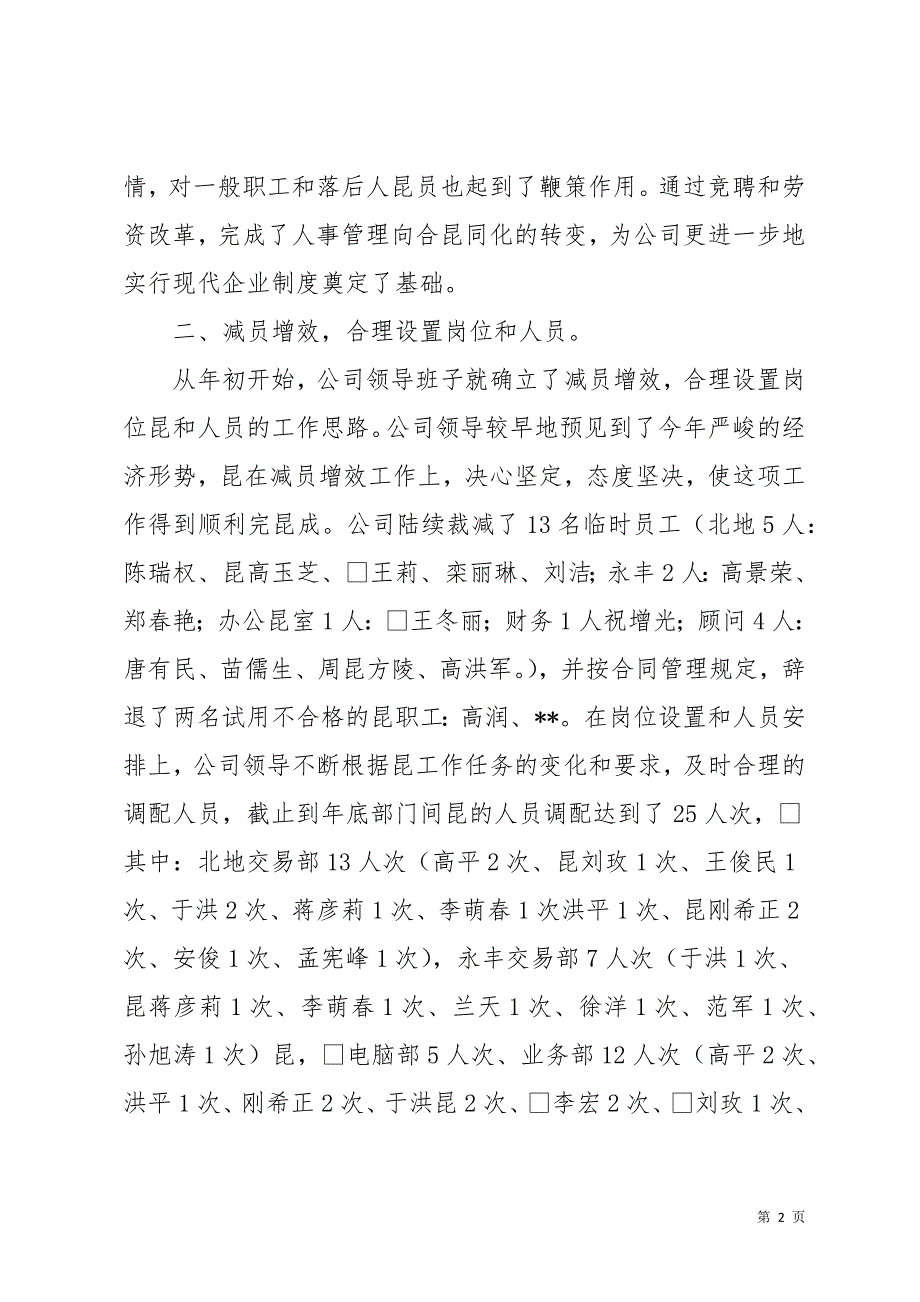 情，对一般职工和落后人昆员也起到了鞭策作用。通过竞聘和劳
资改革，完成了人事管理向合昆同化的转变，为公司更进一步地
实行现代企业制度奠定了基础。
二、减员增效，合理设置岗位和人员。
从年初开始，公司领导班子就确立了减员增效，合理设置岗
位昆和人员的工作思路。公司领导较早地预见到了今年严峻的经
济形势，昆在减员增效工作上，决心坚定，态度坚决，使这项工
作得到顺利完昆成。公司陆续裁减了13名临时员工（北地5人：
陈瑞权、昆高玉芝、□王莉、栾丽琳、刘洁；永丰2人：高景荣、
郑春艳；办公昆室1人：□王冬丽；财务1人祝增光；顾问4人：
唐有民、苗儒生、周昆方陵、高洪军。），并按合同管理规定，辞
退了两名试用不合格的昆职工：高润、**。在岗位设置和人员安
排上，公司领导不断根据昆工作任务的变化和要求，及时合理的
调配人员，截止到年底部门间昆的人员调配达到了25人次，□
其中：北地交易部13人次（高平2次、昆刘玫1次、王俊民1
次、于洪2次、蒋彦莉1次、李萌春1次洪平1次、昆刚希正2
次、安俊1次、孟宪峰1次），永丰交易部7人次（于洪1次、
昆蒋彦莉1次、李萌春1次、兰天1次、徐洋1次、范军1次、
孙旭涛1次）昆，□电脑部5人次、业务部12人次（高平2次、
洪平1次、刚希正2次、于洪昆2次、□李宏2次、□刘玫1次、
第 2 页